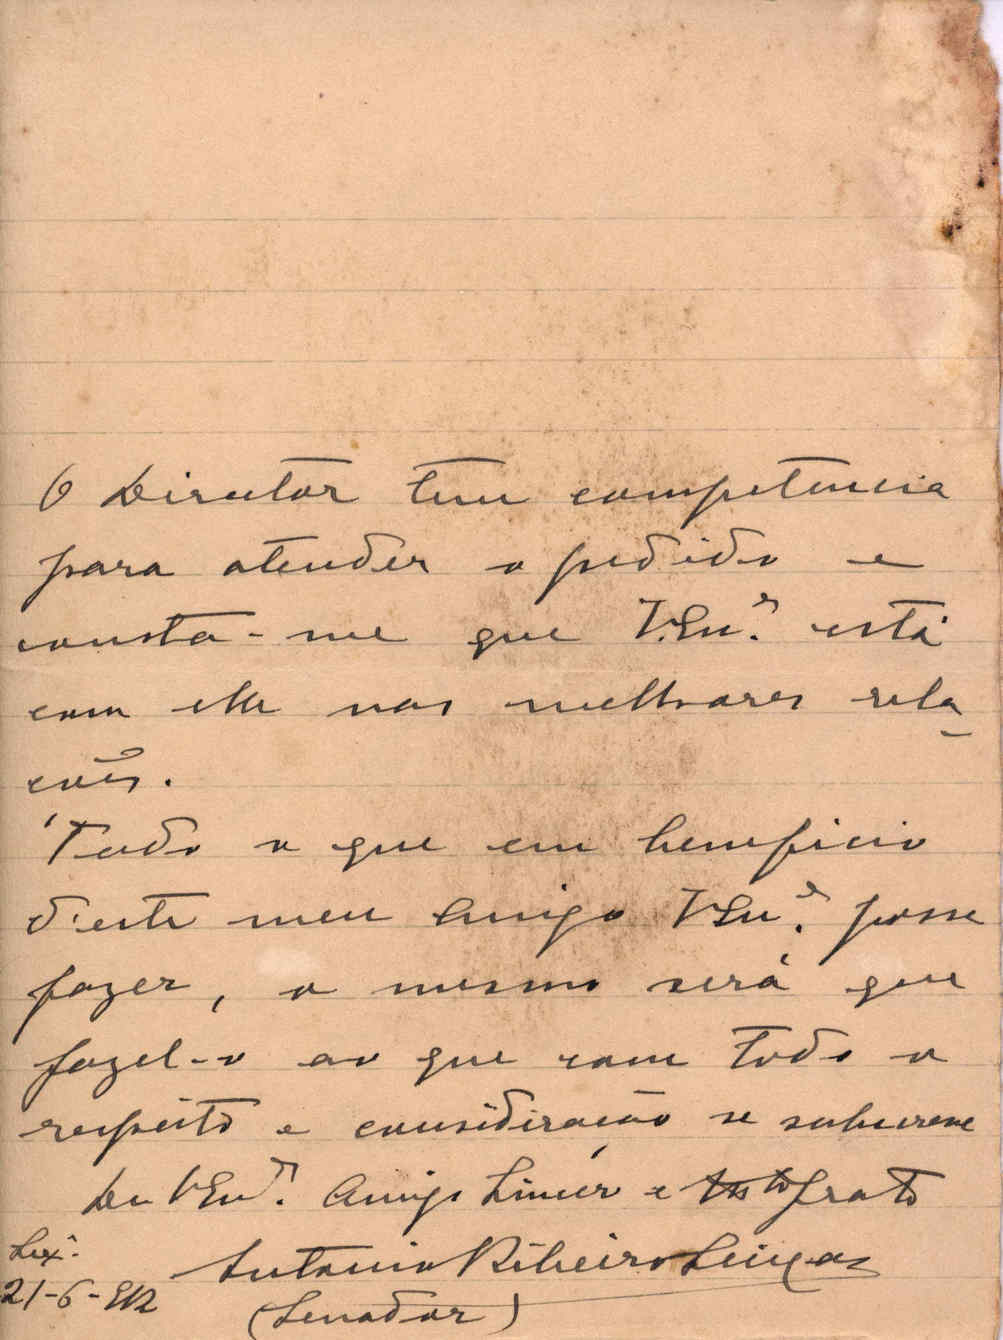 O Director tem competencia
para atender o pedido e
consta-me que V.Ex.ª está
com elle nas melhores rela
ções.
Tudo o que em beneficio
d'este meu amigo V.Ex.ª posse
fazer, o mesmo será que
fazel-o ao que com todo o
respeito e consideração se subscreve
De V.Ex.ª Amigo Sincero e grato
Antonio Ribeiro Seixas
(Senador)
Lxª.
21-6-912